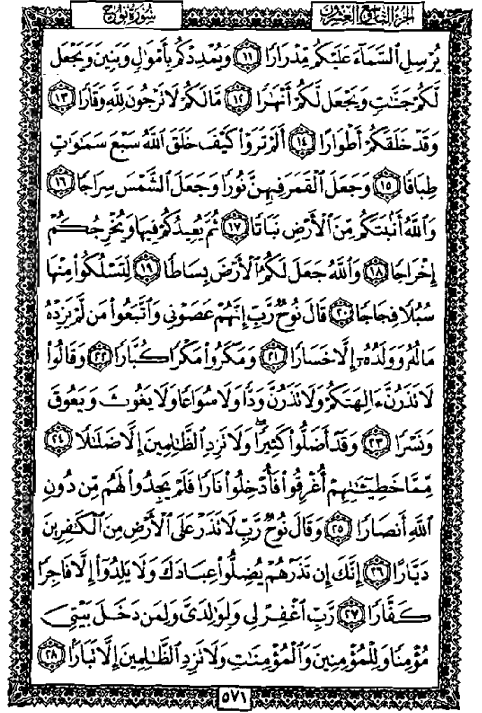 الجزء التاسع والعشرون
سورة نوح
يُرْسِلِ ٱلسَّمَآءَ عَلَيْكُم مِّدْرَارًا ﴿١١﴾ وَيُمْدِدْكُم بِأَمْوَٰلٍ وَبَنِينَ وَيَجْعَل
لَّكُمْ جَنَّٰتٍ وَيَجْعَل لَّكُمْ أَنْهَٰرًا ﴿١٢﴾ مَّالَكُمْ لَا تَرْجُونَ لِلَّهِ وَقَارًا ﴿١٣﴾
وَقَدْ خَلَقَكُمْ أَطْوَارًا ﴿١٤﴾ أَلَمْ تَرَوْا۟ كَيْفَ خَلَقَ ٱللَّهُ سَبْعَ سَمَٰوَٰتٍ
طِبَاقًا ﴿١٥﴾ وَجَعَلَ ٱلْقَمَرَ فِيهِنَّ نُورًا وَجَعَلَ ٱلشَّمْسَ سِرَاجًا ﴿١٦﴾
وَٱللَّهُ أَنۢبَتَكُم مِّنَ ٱلْأَرْضِ نَبَاتًا ﴿١٧﴾ ثُمَّ يُعِيدُكُمْ فِيهَا وَيُخْرِجُكُمْ
إِخْرَاجًا ﴿١٨﴾ وَٱللَّهُ جَعَلَ لَكُمُ ٱلْأَرْضَ بِسَاطًا ﴿١٩﴾ لِّتَسْلُكُوا۟ مِنْهَا
سُبُلًا فِجَاجًا ﴿٢٠﴾ قَالَ نُوحٌ رَّبِّ إِنَّهُمْ عَصَوْنِى وَٱتَّبَعُوا۟ مَن لَّمْ يَزِدْهُ
مَالُهُۥ وَوَلَدُهُۥٓ إِلَّا خَسَارًا ﴿٢١﴾ وَمَكَرُوا۟ مَكْرًا كُبَّارًا ﴿٢٢﴾ وَقَالُوا۟
لَا تَذَرُنَّ ءَالِهَتَكُمْ وَلَا تَذَرُنَّ وَدًّا وَلَا سُوَاعًا وَلَا يَغُوثَ وَيَعُوقَ
وَنَسْرًا ﴿٢٣﴾ وَقَدْ أَضَلُّوا۟ كَثِيرًا ۖ وَلَا تَزِدِ ٱلظَّٰلِمِينَ إِلَّا ضَلَٰلًا ﴿٢٤﴾
مِّمَّا خَطِيٓـَٰٔتِهِمْ أُغْرِقُوا۟ فَأُدْخِلُوا۟ نَارًا فَلَمْ يَجِدُوا۟ لَهُم مِّن دُونِ
ٱللَّهِ أَنصَارًا ﴿٢٥﴾ وَقَالَ نُوحٌ رَّبِّ لَا تَذَرْ عَلَى ٱلْأَرْضِ مِنَ ٱلْكَٰفِرِينَ
دَيَّارًا ﴿٢٦﴾ إِنَّكَ إِن تَذَرْهُمْ يُضِلُّوا۟ عِبَادَكَ وَلَا يَلِدُوٓا۟ إِلَّا فَاجِرًا
كَفَّارًا ﴿٢٧﴾ رَّبِّ ٱغْفِرْ لِى وَلِوَٰلِدَىَّ وَلِمَن دَخَلَ بَيْتِىَ
مُؤْمِنًا وَلِلْمُؤْمِنِينَ وَٱلْمُؤْمِنَٰتِ وَلَا تَزِدِ ٱلظَّٰلِمِينَ إِلَّا تَبَارًۢا ﴿٢٨﴾
٥٧١